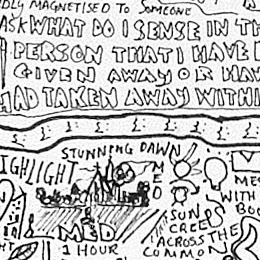 DLY MAGNETISED TO SOMEONE
ASK WHAT DO I SENSE IN TH
PERSON THAT I HAVE
GIVEN AWAY OR HAV
HAD TAKEN AWAY WITHI
£ £ £ £ £ £
STUNNING DAWN
HIGHLIGHT
MED
MED
1 HOUR
SUN
CREEPS
ACROSS THE
COMMON
ME
WITH
BOO